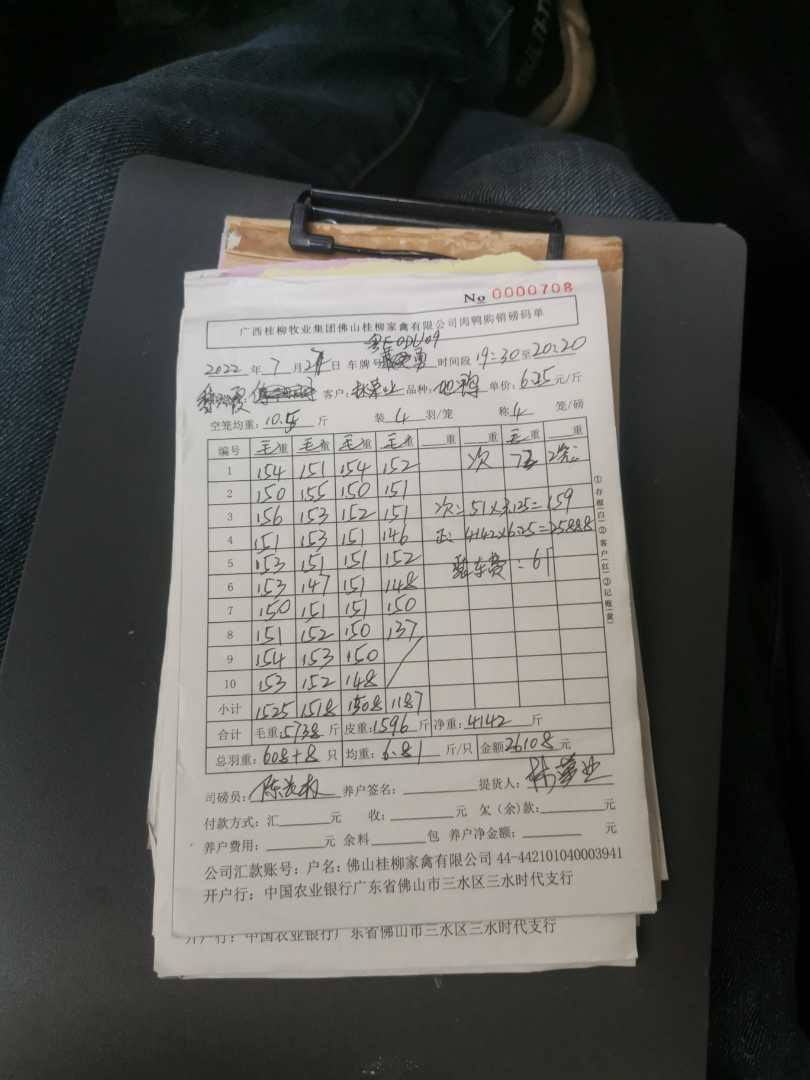 No 0000708
广西桂柳牧业集团佛山桂柳家禽有限公司肉鸭购销磅码单
2022年7月 日 车牌号 勇 时间段19:30至20:20
客户: 业 品种: 单价:6.25元/斤
空笼均重:10.5斤 装4羽/笼 称4笼/磅
编号 毛重 毛重 毛重 毛重 重 重 毛重 重
1 154 151 154 152 次
2 150 155 150 151
3 156 153 152 151 次:51×3.125=159
4 151 153 151 146 正:4142×6.25=25888
5 153 151 151 152 装车费:61
6 153 147 151 148
7 150 151 151 150
8 151 152 150 137
9 154 153 150
10 153 152 148
小计 1525 1518 1508 1187
合计 毛重:5738斤 皮重:1596斤 净重:4142斤
总羽重:608+8只 均重:6.81斤/只 金额26108元
司磅员: 养户签名: 提货人:
付款方式:汇 元 收: 元 欠(余)款: 元
养户费用: 元 余料 包 养户净金额: 元
公司汇款账号:户名:佛山桂柳家禽有限公司 44-442101040003941
开户行:中国农业银行广东省佛山市三水区三水时代支行
①存根(白)②客户(红)③记账(黄)
开户行:中国农业银行广东省佛山市三水区三水时代支行